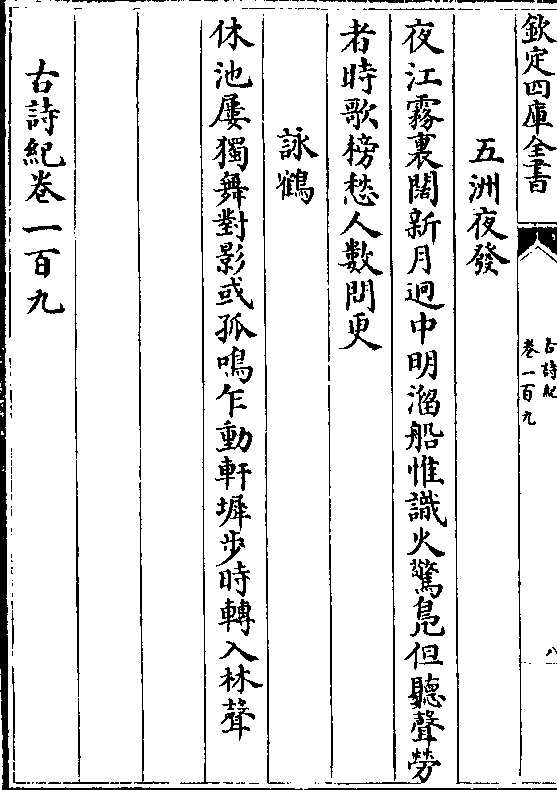 欽定四庫全書
古詩紀
卷一百九
八
五洲夜發
夜江霧裏闊新月迥中明溜船惟識火驚鳬但聽聲勞
者時歌榜愁人數問更
詠鶴
休池屢獨舞對影或孤鳴乍動軒墀步時轉入林聲
古詩紀卷一百九